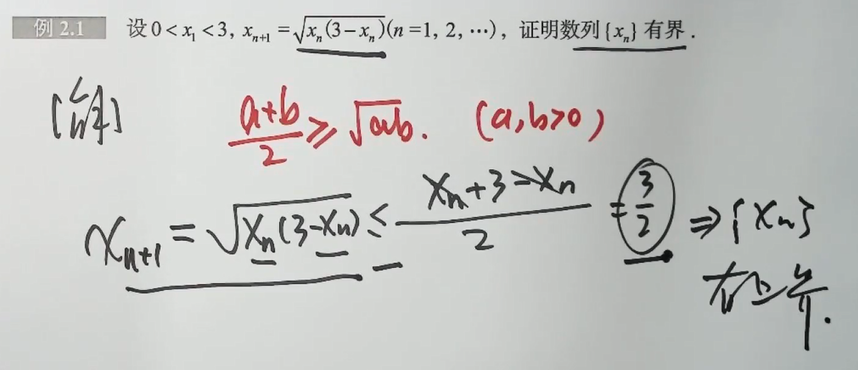 例 2.1 设0<x₁<3, xₙ₊₁=√(xₙ(3-xₙ))(n=1, 2, ⋯), 证明数列{xₙ}有界.
[解] (a+b)/2 ≥ √(ab). (a,b>0)
xₙ₊₁ = √(xₙ(3-xₙ)) ≤ (xₙ+3-xₙ)/2 = 3/2 ⇒ {xₙ}
有上界.